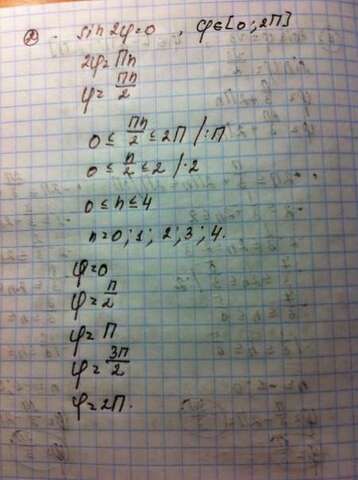 ② sin 2φ=0 , φ∈[0;2П]
2φ=Пn
φ=Пn/2
0≤Пn/2≤2П /:П
0≤n/2≤2 /·2
0≤n≤4
n=0;1;2;3;4.
φ=0
φ=П/2
φ=П
φ=3П/2
φ=2П.